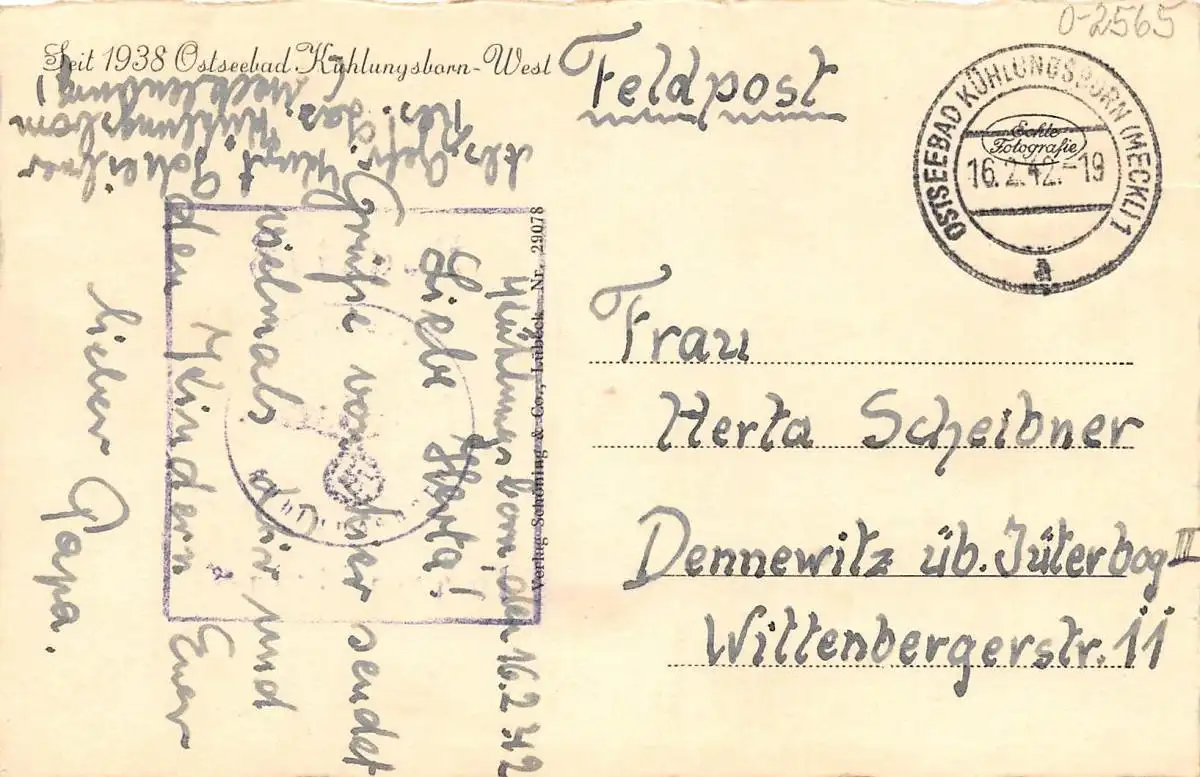 0-2565
Seit 1938 Ostseebad Kühlungsborn-West
Feldpost
OSTSEEBAD KÜHLUNGSBORN (MECKL) 1
Echte
Fotografie
16.2.42.-19
a
Abs. Gefr. Kurt Scheibner
Res. Laz. Kühlungsborn
(Mecklenburg)
Kühlungsborn, den 16.2.42
Liebe Herta!
Grüße von hier sendet
vielmals dir und
den Kindern Euer
lieber Papa.
Verlag Schöning & Co., Lübeck Nr. 29078
Frau
Herta Scheibner
Dennewitz üb. Jüterbog II
Wittenbergerstr. 11